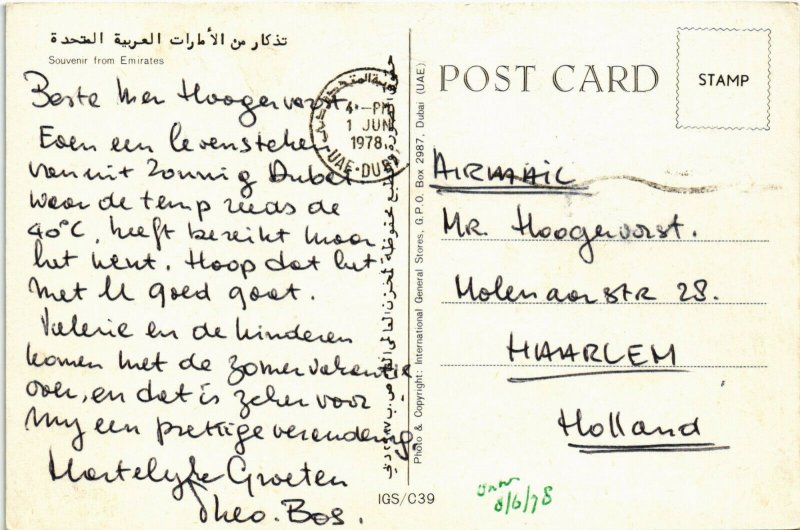 تذكار من الأمارات العربية المتحدة
Souvenir from Emirates
Beste Mer Hoogervorst,
Even een levensteken
vanuit Zonnig Dubai
waar de temp reeds de
40°C. heeft bereikt maar
het went. Hoop dat het
met U goed gaat.
Valerie en de kinderen
komen met de zomervakantie
over, en dat is zeker voor
my een prettige verandering.
Hartelyke Groeten
Theo. Bos.
4·-PM
1 JUN
1978
UAE·DUB
Photo & Copyright: International General Stores, G.P.O. Box 2987, Dubai (UAE)
POST CARD
STAMP
AIRMAIL
MR. Hoogervorst.
Molenaarstr 28.
HAARLEM
Holland
IGS/C39
8/6/78